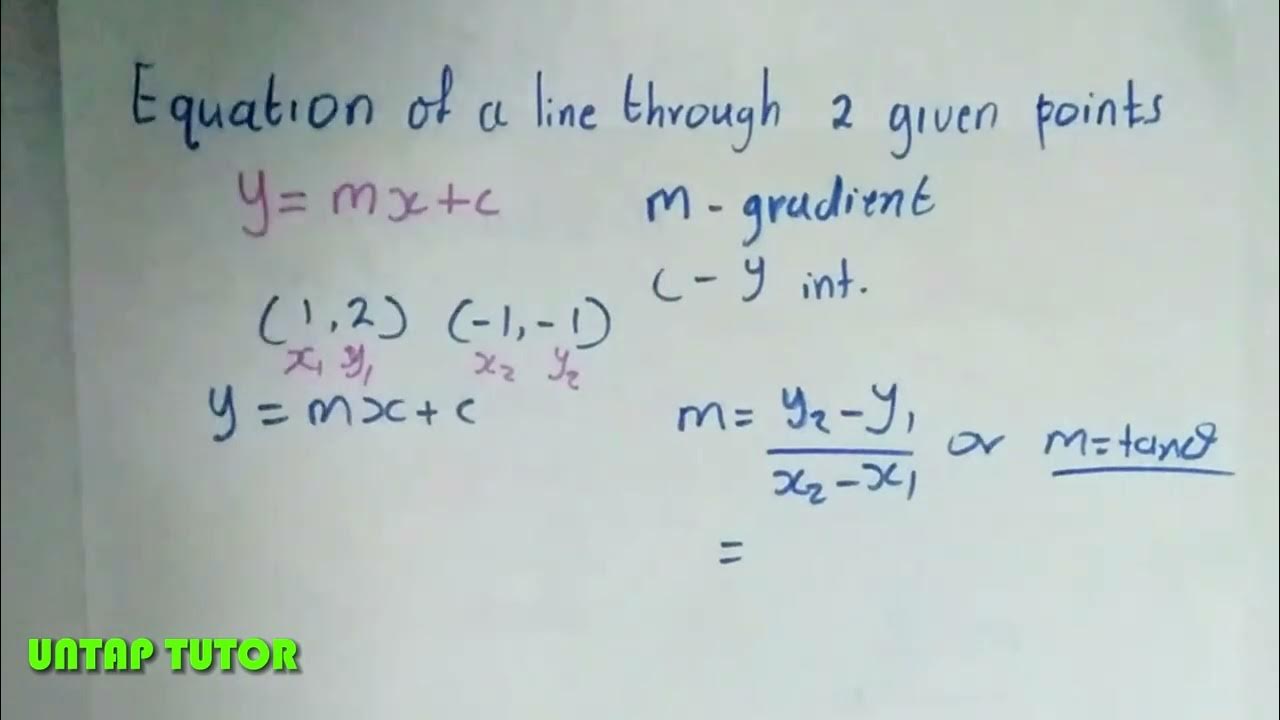 Equation of a line through 2 given points
y = mx + c    m - gradient
c - y int.
(1, 2) (-1, -1)
x₁ y₁ x₂ y₂
y = mx + c    m = y₂ - y₁ / x₂ - x₁ or m = tanθ
=
UNTAP TUTOR